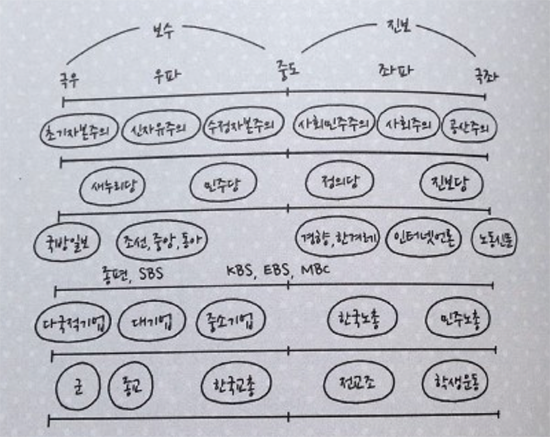 보수 진보
극우 우파 중도 좌파 극좌
초기자본주의 신자유주의 수정자본주의 사회민주주의 사회주의 공산주의
새누리당 민주당 정의당 진보당
국방일보 조선, 중앙, 동아 경향, 한겨레 인터넷언론 노동신문
종편, SBS KBS, EBS, MBC
다국적기업 대기업 중소기업 한국노총 민주노총
군 종교 한국교총 전교조 학생운동